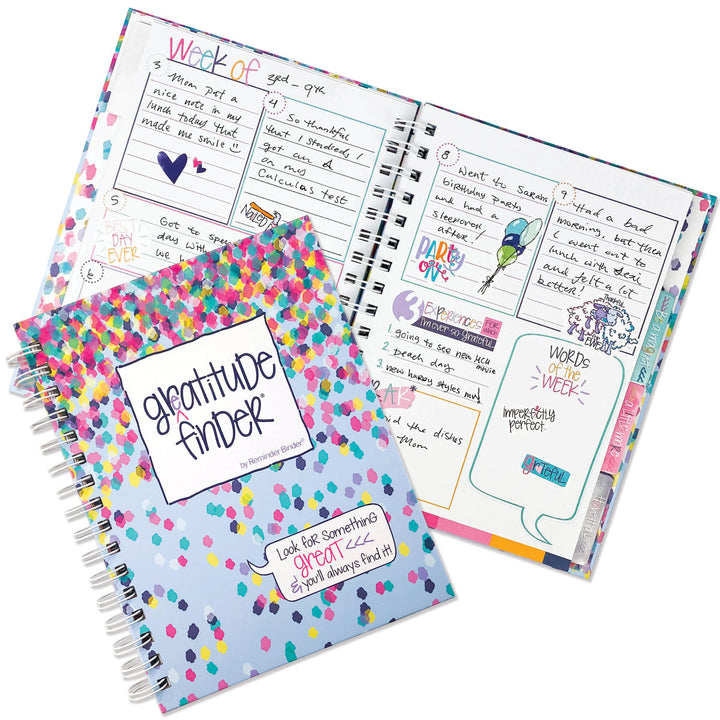 Week of 3rd - 9th
3 Mom put a
nice note in my
lunch today that
made me smile
4 So thankful
that I studied!
got an A
on my
Calculus test
Nailed
5
BEST
DAY
EVER
Got to spe
day with
we h
6
8 Went to Sarahs
birthday party
and had a
sleepover
after!
PARTY
ON
9 Had a bad
morning, but then
I went out to
lunch with
and felt a lot
better!
3 EXPERIENCES FOR WHICH
I'm ever-so-Grateful
1. going to see new HCU
movie
2. peach day
3. new harry styles
AK
d the dishes
Mom
WORDS
of the
WEEK
imperfectly
perfect
grateful
greatitude
finder®
by Reminder Binder®
Look for something
great <<<
& you'll always find it!